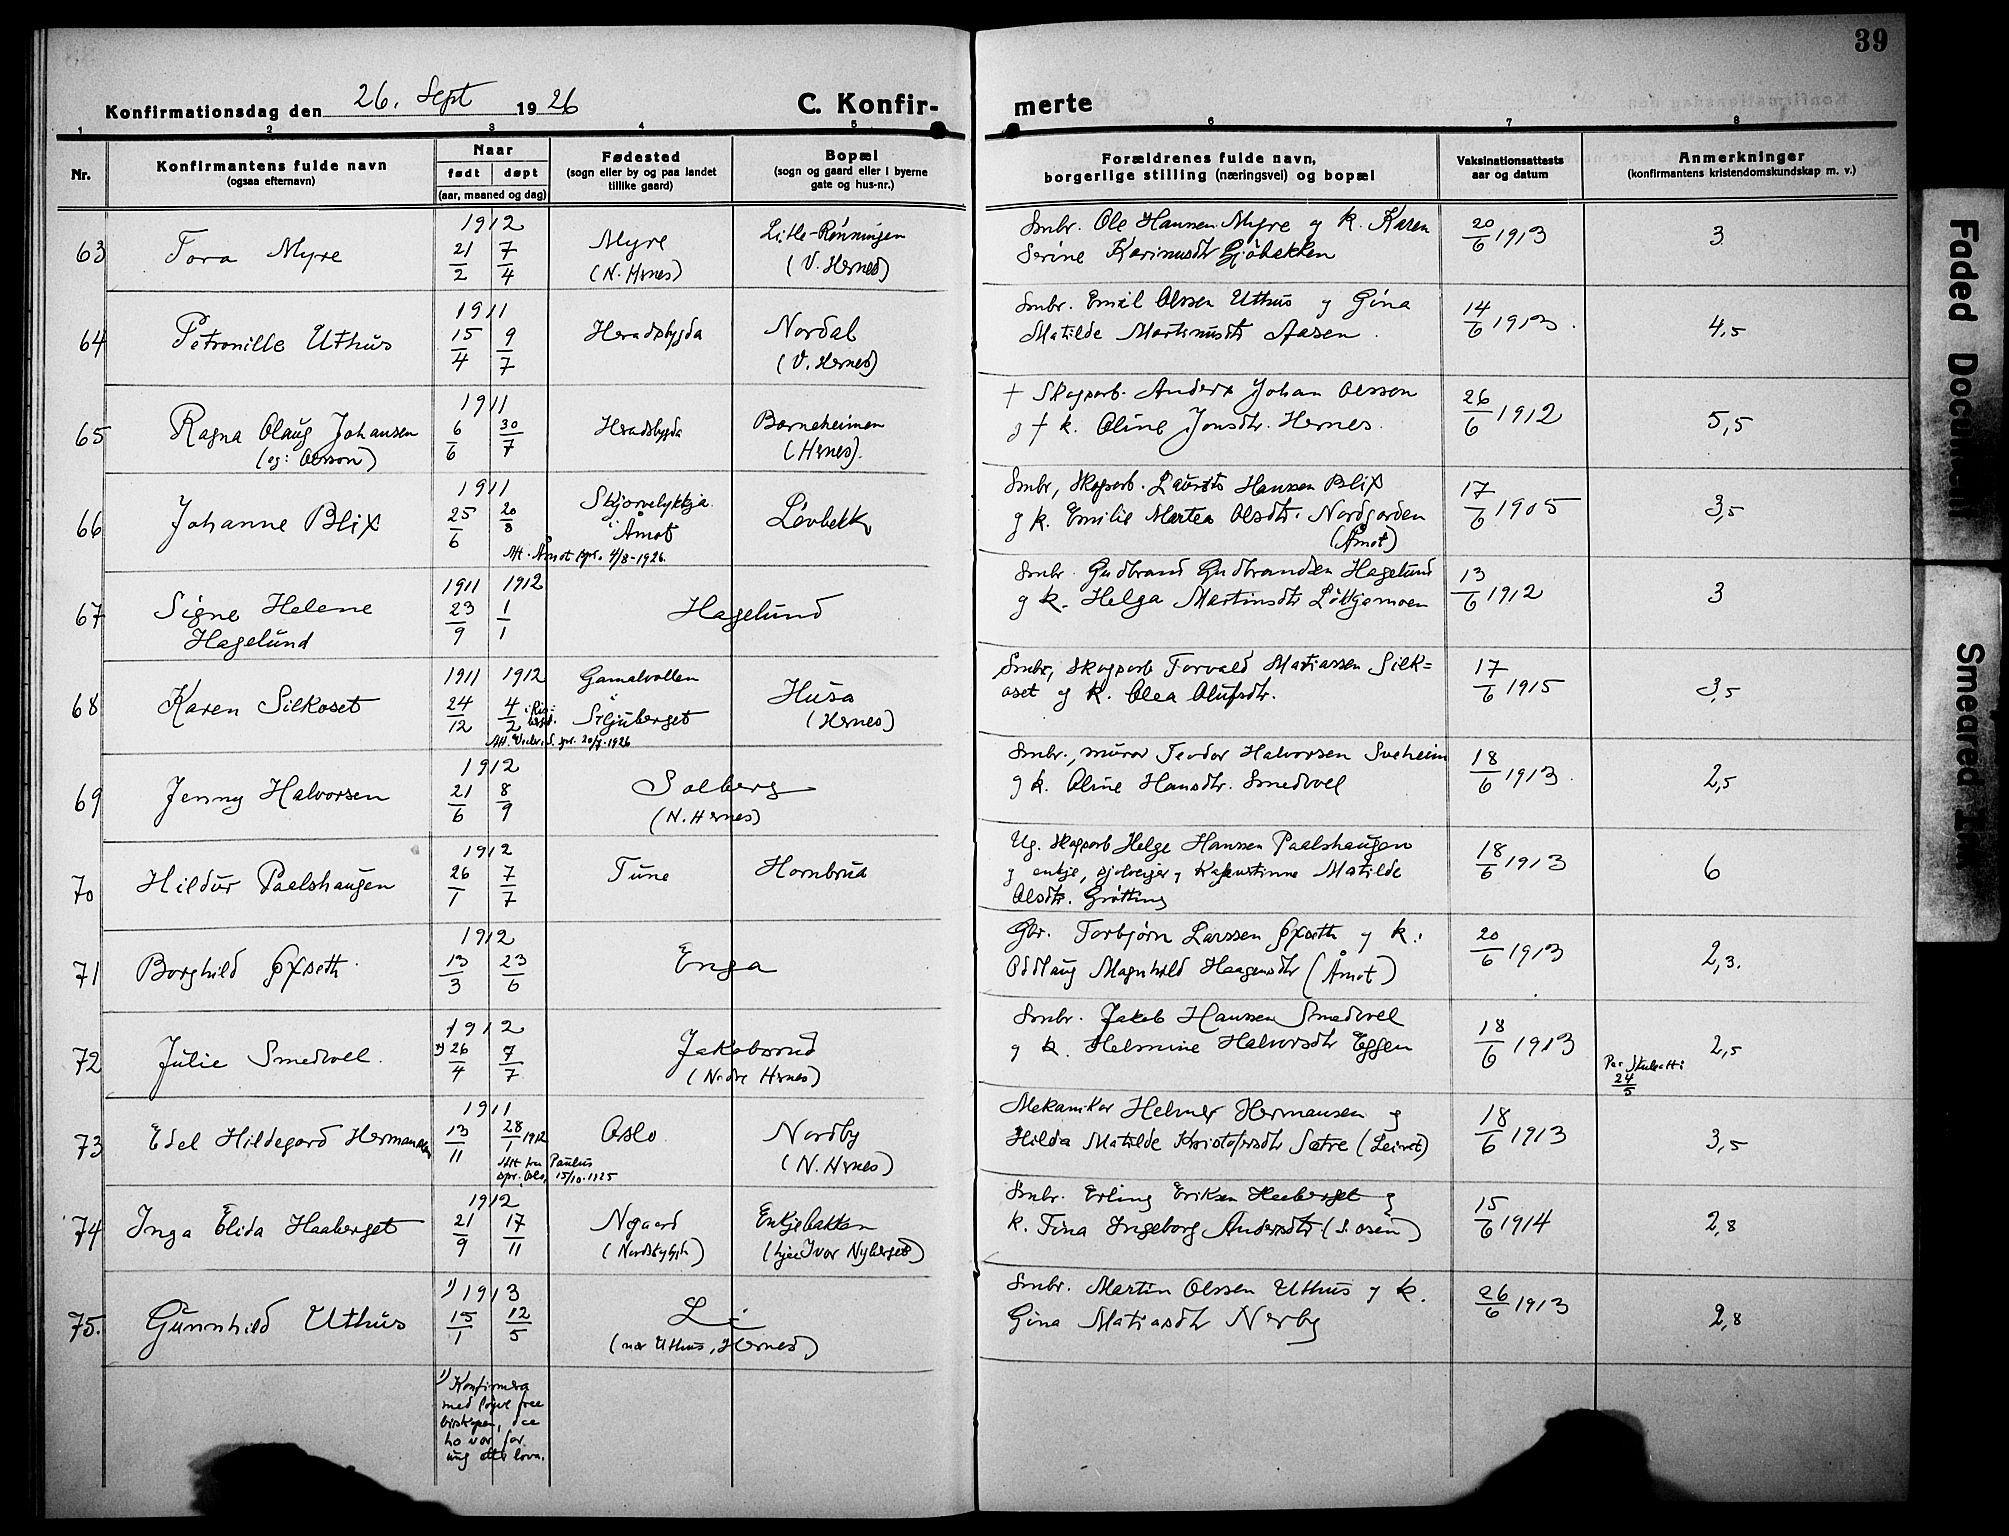 39
Konfirmationsdag den 26. Sept 1926
C. Konfir-
merte
1 2 3 4 5 6 7 8
Nr.
Konfirmantens fulde navn
(ogsaa efternavn)
Naar
født døpt
(aar, maaned og dag)
Fødested
(sogn eller by og paa landet
tillike gaard)
Bopæl
(sogn og gaard eller i byerne
gate og hus-nr.)
Forældrenes fulde navn,
borgerlige stilling (næringsvei) og bopæl
Vaksinationsattests
aar og datum
Anmerkninger
(konfirmantens kristendomskundskap m. v.)
63 Tora Myre
1912
21/2 7/4
Myre
(N. Hernes)
Litle-Rønningen
(V. Hernes)
Smbr. Ole Hansen Myre og k. Karen
Serine Karinusdtr
20/6 1913
3
64 Petronille Uthus
1911
15/4 9/7
Heradsbygda
Nordal
(V. Hernes)
Smbr. Emil Olssen Uthus og Gina
Matilde Martinusdtr Aasen.
14/6 1913.
4,5
65 Ragna Olaug Johansen
(eg: Olsson)
1911
6/6 30/7
Heradsbygda
Barneheimen
(Hernes).
† Skogsarb. Anders Johan Olsson
og † k. Oline Jonsdtr. Hernes.
26/6 1912
5,5
66 Johanne Blix
1911
25/6 20/8
i Åmot
Att. Åmot spr. 4/8-1926.
Løvbekk
Smbr, skogsarb. Laurits Hansen Blix
og k. Emilie Martea Olsdtr. Nordgarden
(Åmot)
17/6 1905
3,5
67 Signe Helene
Hagelund
1911 1912
23/9 1/1
Hagelund
Smbr. Gudbrand Gudbrandsen Hagelund
og k. Helga Martinsdtr
13/6 1912
3
68 Karen Silkoset
1911 1912
24/12 4/2
Gamalvollen
Siljuberget
20/7-1926
Husa
(Hernes)
Smbr, skogsarb Torvald Matiassen Silk=
oset og k. Olea Olufsdtr.
17/6 1915
3,5
69 Jenny Halvorsen
1912
21/6 8/9
Solberg
(N. Hernes)
Smbr., murar Teodor Halvorsen Sveheim
og k. Oline Hansdtr. Smedvoll
18/6 1913.
2,5
70 Hildur Paalshaugen
1912
26/1 7/7
Tune
Hornbrua
Ug. skogsarb Helge Hanssen Paalshaugen
og enkje, sjølveiger, Matilde
Olsdtr. Grøtting
18/6 1913
6
71 Borghild Øxseth
1912
13/3 23/6
Enga
Gbr. Torbjørn Larssen Øxseth og k.:
Oddlaug Magnhild Haagensdtr (Åmot)
20/6 1913
2,3.
72 Julie Smedvoll.
1912
1) 26/4 7/7
Jakobsrud
(Nedre Hernes)
Smbr. Jakob Hanssen Smedvoll
og k. Helmine Halvorsdtr Eggen
18/6 1913
2,5
24/5
73 Edel Hildegard Hermansen
1911
13/11 28/1 1912
Att fra Paulus
spr. Oslo, 15/10-1925
Oslo.
Nordby
(N. Hernes)
Mekaniker Helmer Hermansen og
Hilda Matilde Kristofersdtr Sætre (Leiret)
18/6 1913
3,5
74 Inga Elida Haaberget
1912
21/9 17/11
Nygaard
(Nordskybygda)
Enkjebakken
(hjaa Ivar Nyberget)
Smbr. Erling Eriksen Haaberget og
k. Tina Ingeborg Andersdtr (S. Osen)
15/6 1914
2,8
75. Gunnhild Uthus
1) 1913
15/1 12/5
Li
(nær Uthus, Hernes)
Smbr. Martin Olssen Uthus og k.
Gina Matiasdtr Nerby
26/6 1913
2,8
1) Konfirmera
med løyve fraa
biskopen, daa
ho var for
ung etter lova.
Faded Document
Smeared Ink